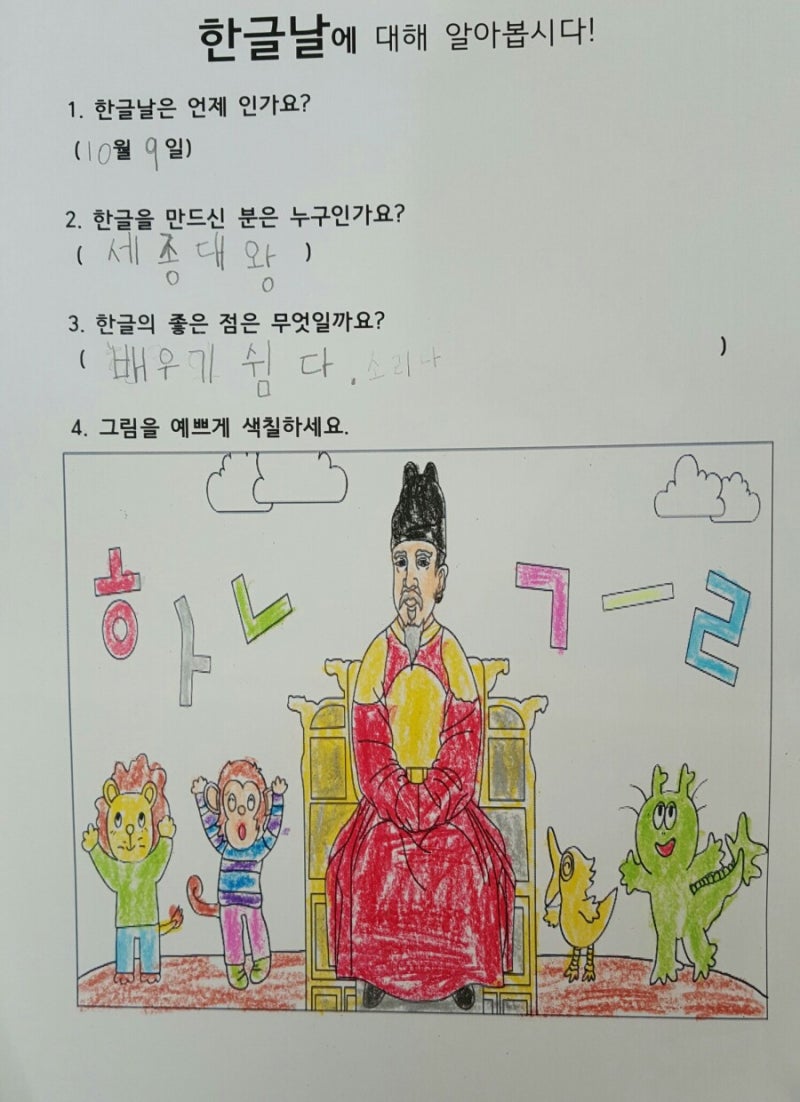 한글날에 대해 알아봅시다!
1. 한글날은 언제 인가요?
(10월 9일)
2. 한글을 만드신 분은 누구인가요?
( 세종대왕 )
3. 한글의 좋은 점은 무엇일까요?
( 배우기 쉽다. 소리나 )
4. 그림을 예쁘게 색칠하세요.
ㅎ ㅏ ㄴ ㄱ ㅡ ㄹ